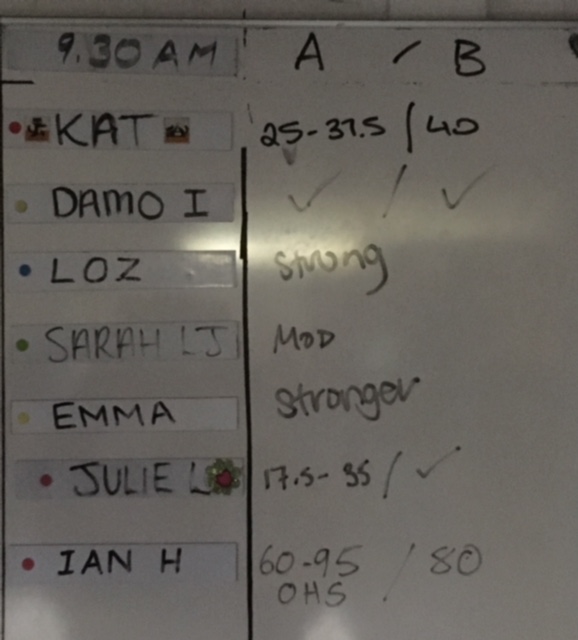 9.30 AM A / B
KAT 25-37.5 / 40
DAMO I ✓ / ✓
LOZ Strong
SARAH LJ MOD
EMMA Stronger
JULIE L 17.5-35 / ✓
IAN H 60-95 / 80
OHS